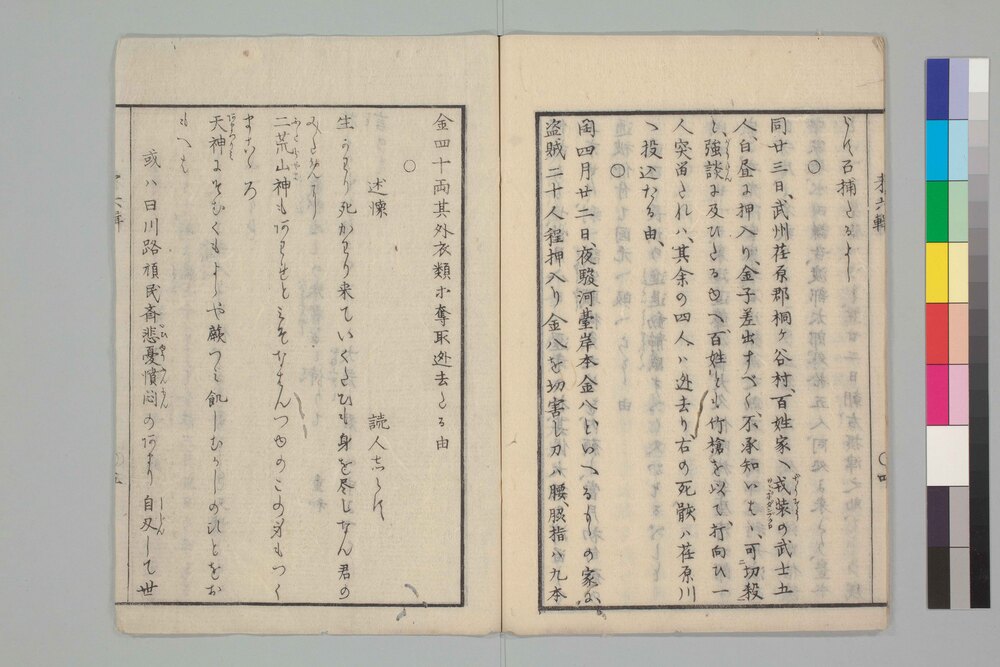 らず召捕たるよし
○
同廿三日、武州荏原郡桐ヶ谷村、百姓家へ戎装の武士五
人、白昼に押入り、金子差出すべく、不承知いはゞ、可切殺
と、強談に及びたる由へ、百姓ども竹槍を以て、打向ひ一
人突留たれハ、其余の四人ハ迯去り右の死骸ハ荏原川
へ投込たる由、
○
閏四月廿二日、夜駿河臺岸本金八といへるものゝ家に、
盗賊二十人程押入り金八を切害し刀ハ腰、脇指ハ九本
金四十両其外衣類ホ奪取迯去たる由
○
述懐
読人志らず
生かわり死かわり来ていくたひも身を尽しなん君の
二荒山神も
天神にそむくもよしや蕨つミ飢しむかしのひとをお
もへハ
或ハ曰川路頑民斎悲憂憤悶のあまり自刃して世